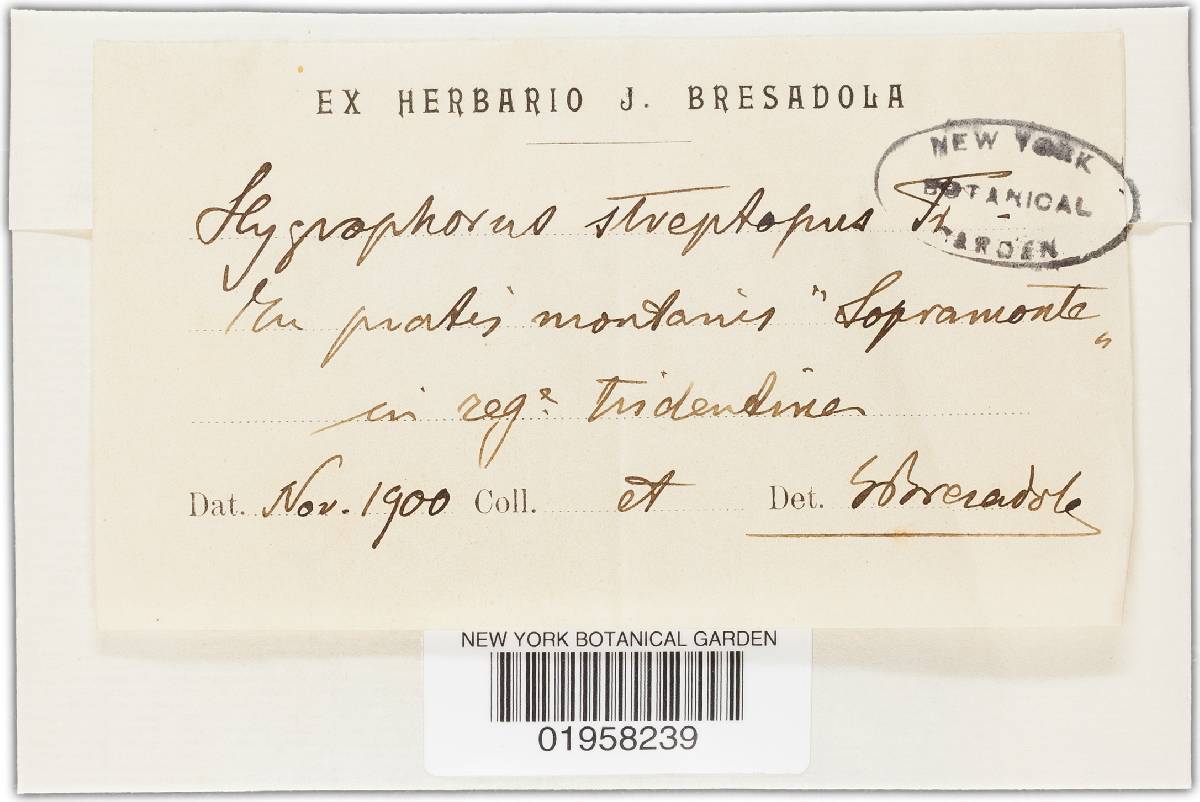 EX HERBARIO J. BRESADOLA
NEW YORK
BOTANICAL
GARDEN
Hygrophorus streptopus Fr.
In pratis montanis "Sopramonte"
in reg.e tridentina
Dat. Nov. 1900 Coll. et Det. Bresadola
NEW YORK BOTANICAL GARDEN
01958239